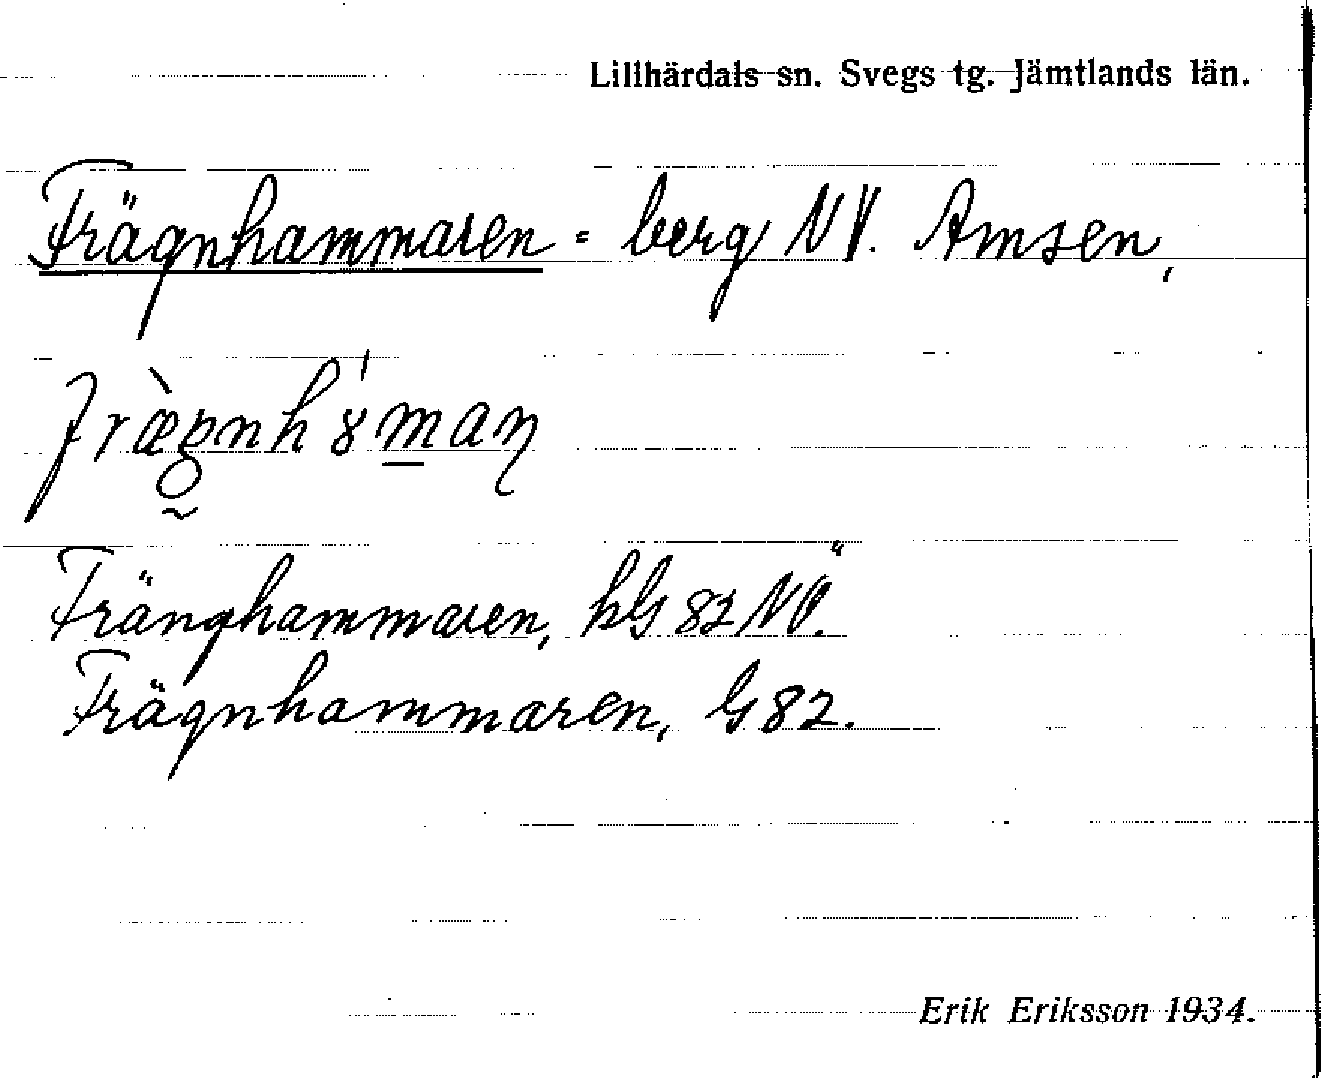 Lillhärdals sn. Svegs tg. Jämtlands län.
Frägnhammaren = berg NV. Amsen,
Fränghammaren, hG 82 NÖ.
Frägnhammaren, G 82.
Erik Eriksson 1934.